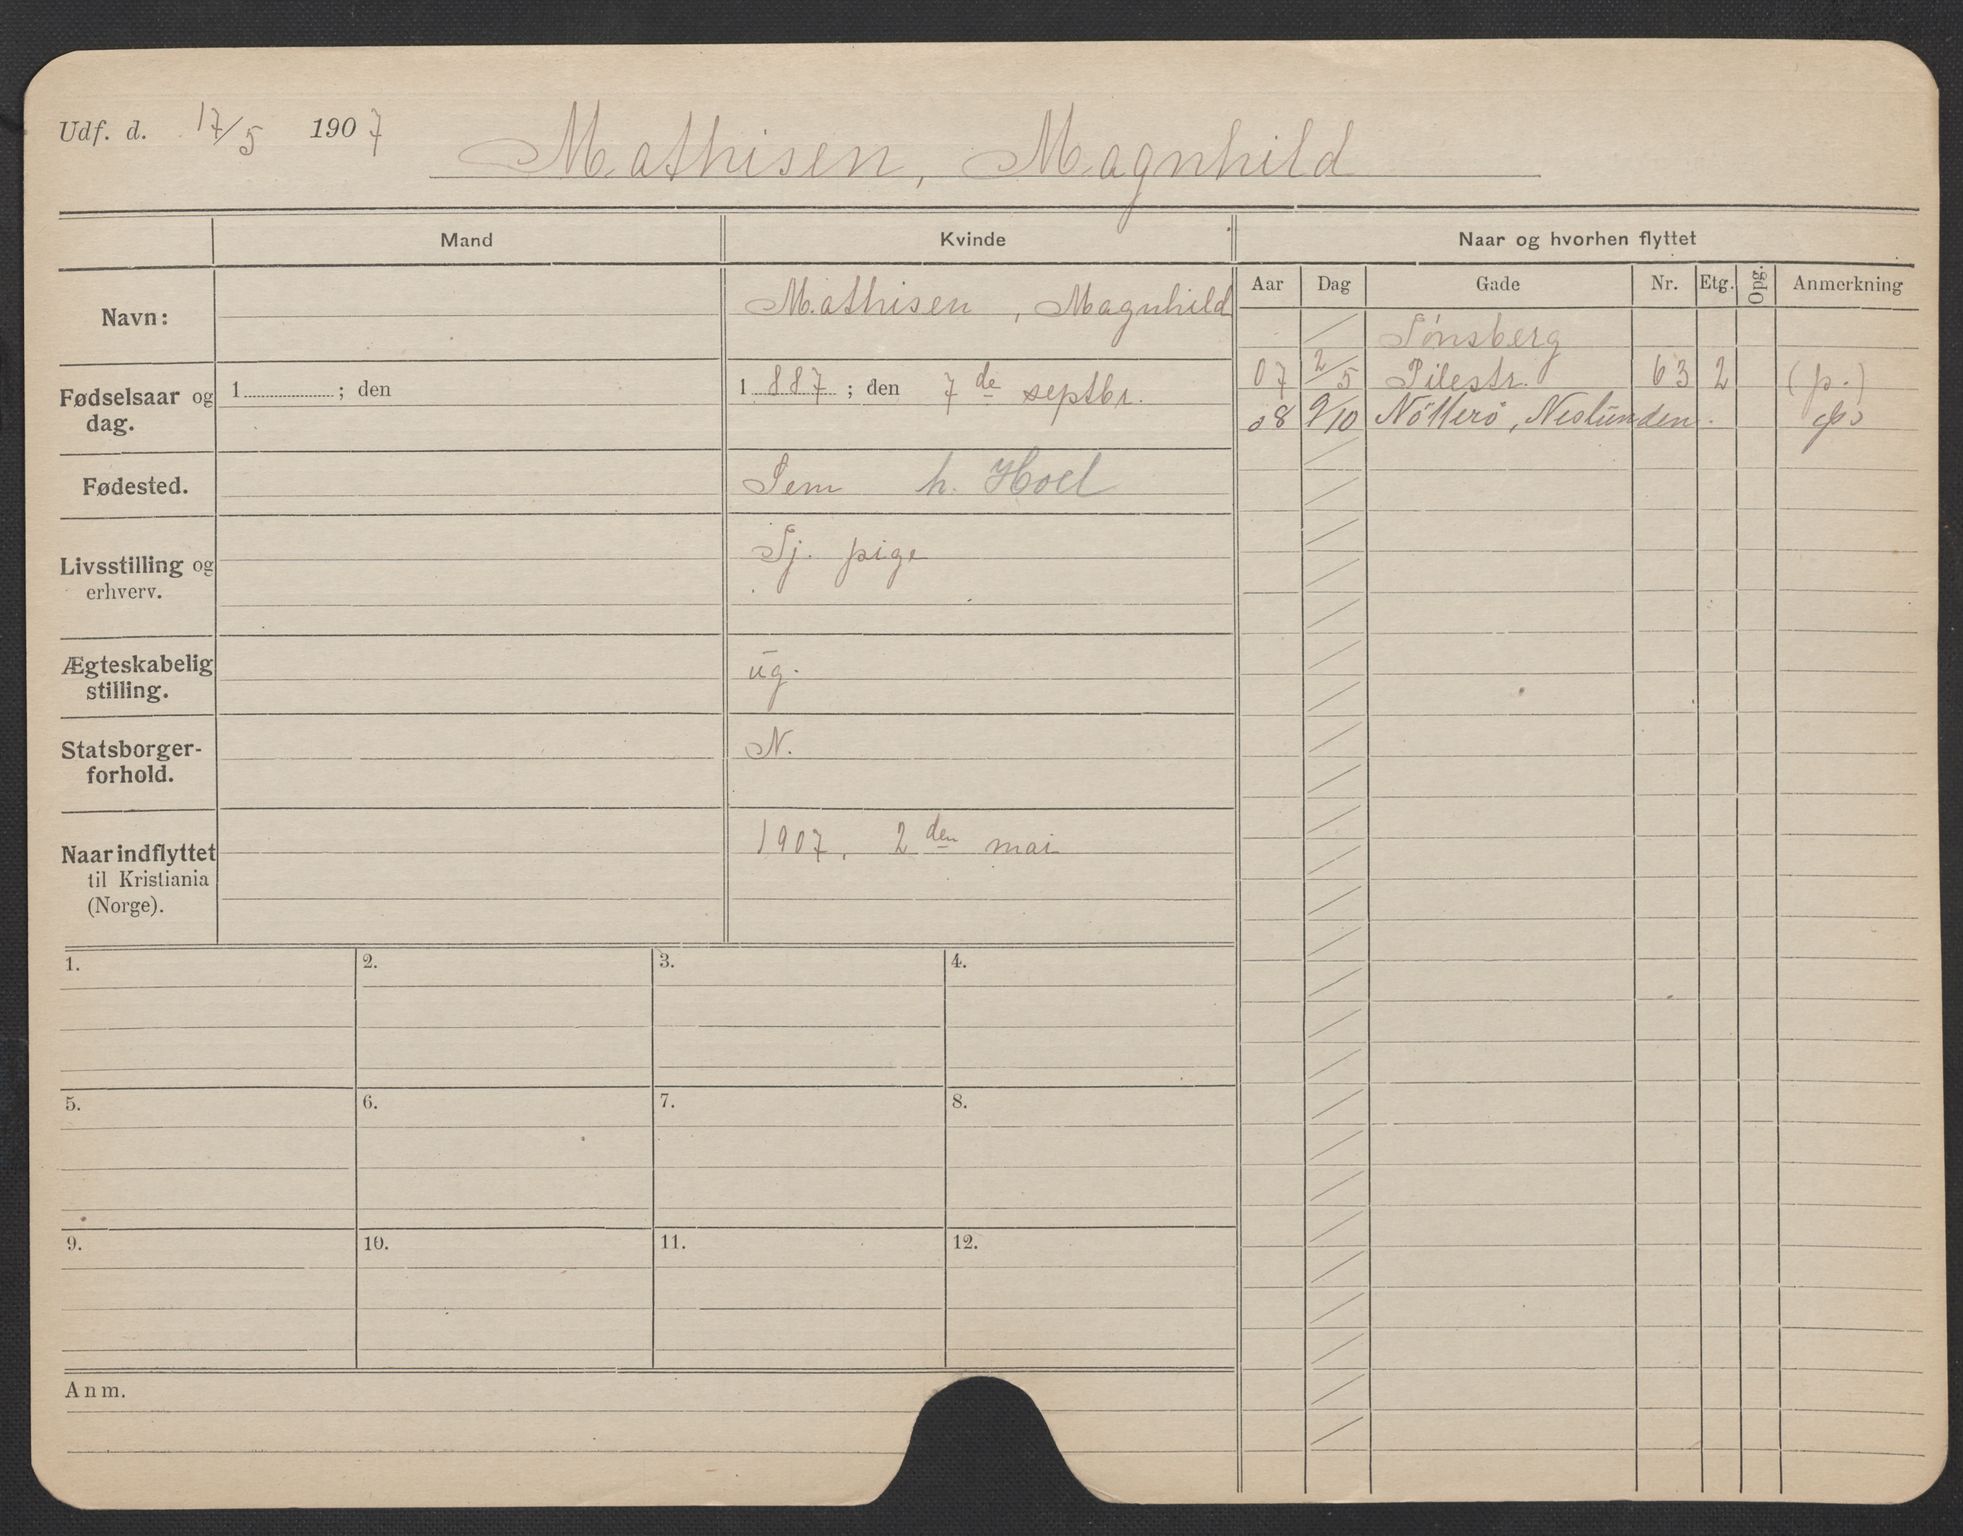 Udf. d. 17/5 1907 Mathisen, Magnhild
Mand Kvinde Naar og hvorhen flyttet
Aar Dag Gade Nr. Etg. Opg. Anmerkning
Navn: Mathisen, Magnhild
Tønsberg
07 2/5 Pilestr. 63 2 (p.)
08 9/10 Nötterö, Neslunden.
Fødselsaar og dag. 1 ; den 1 887 ; den 7 de septbr.
Fødested. Sem h. Hoel
Livsstilling og erhverv. Tj. pige
Ægteskabelig stilling. ug.
Statsborger-
forhold. N.
Naar indflyttet
til Kristiania
(Norge). 1907. 2 den mai
1. 2. 3. 4.
5. 6. 7. 8.
9. 10. 11. 12.
Anm.